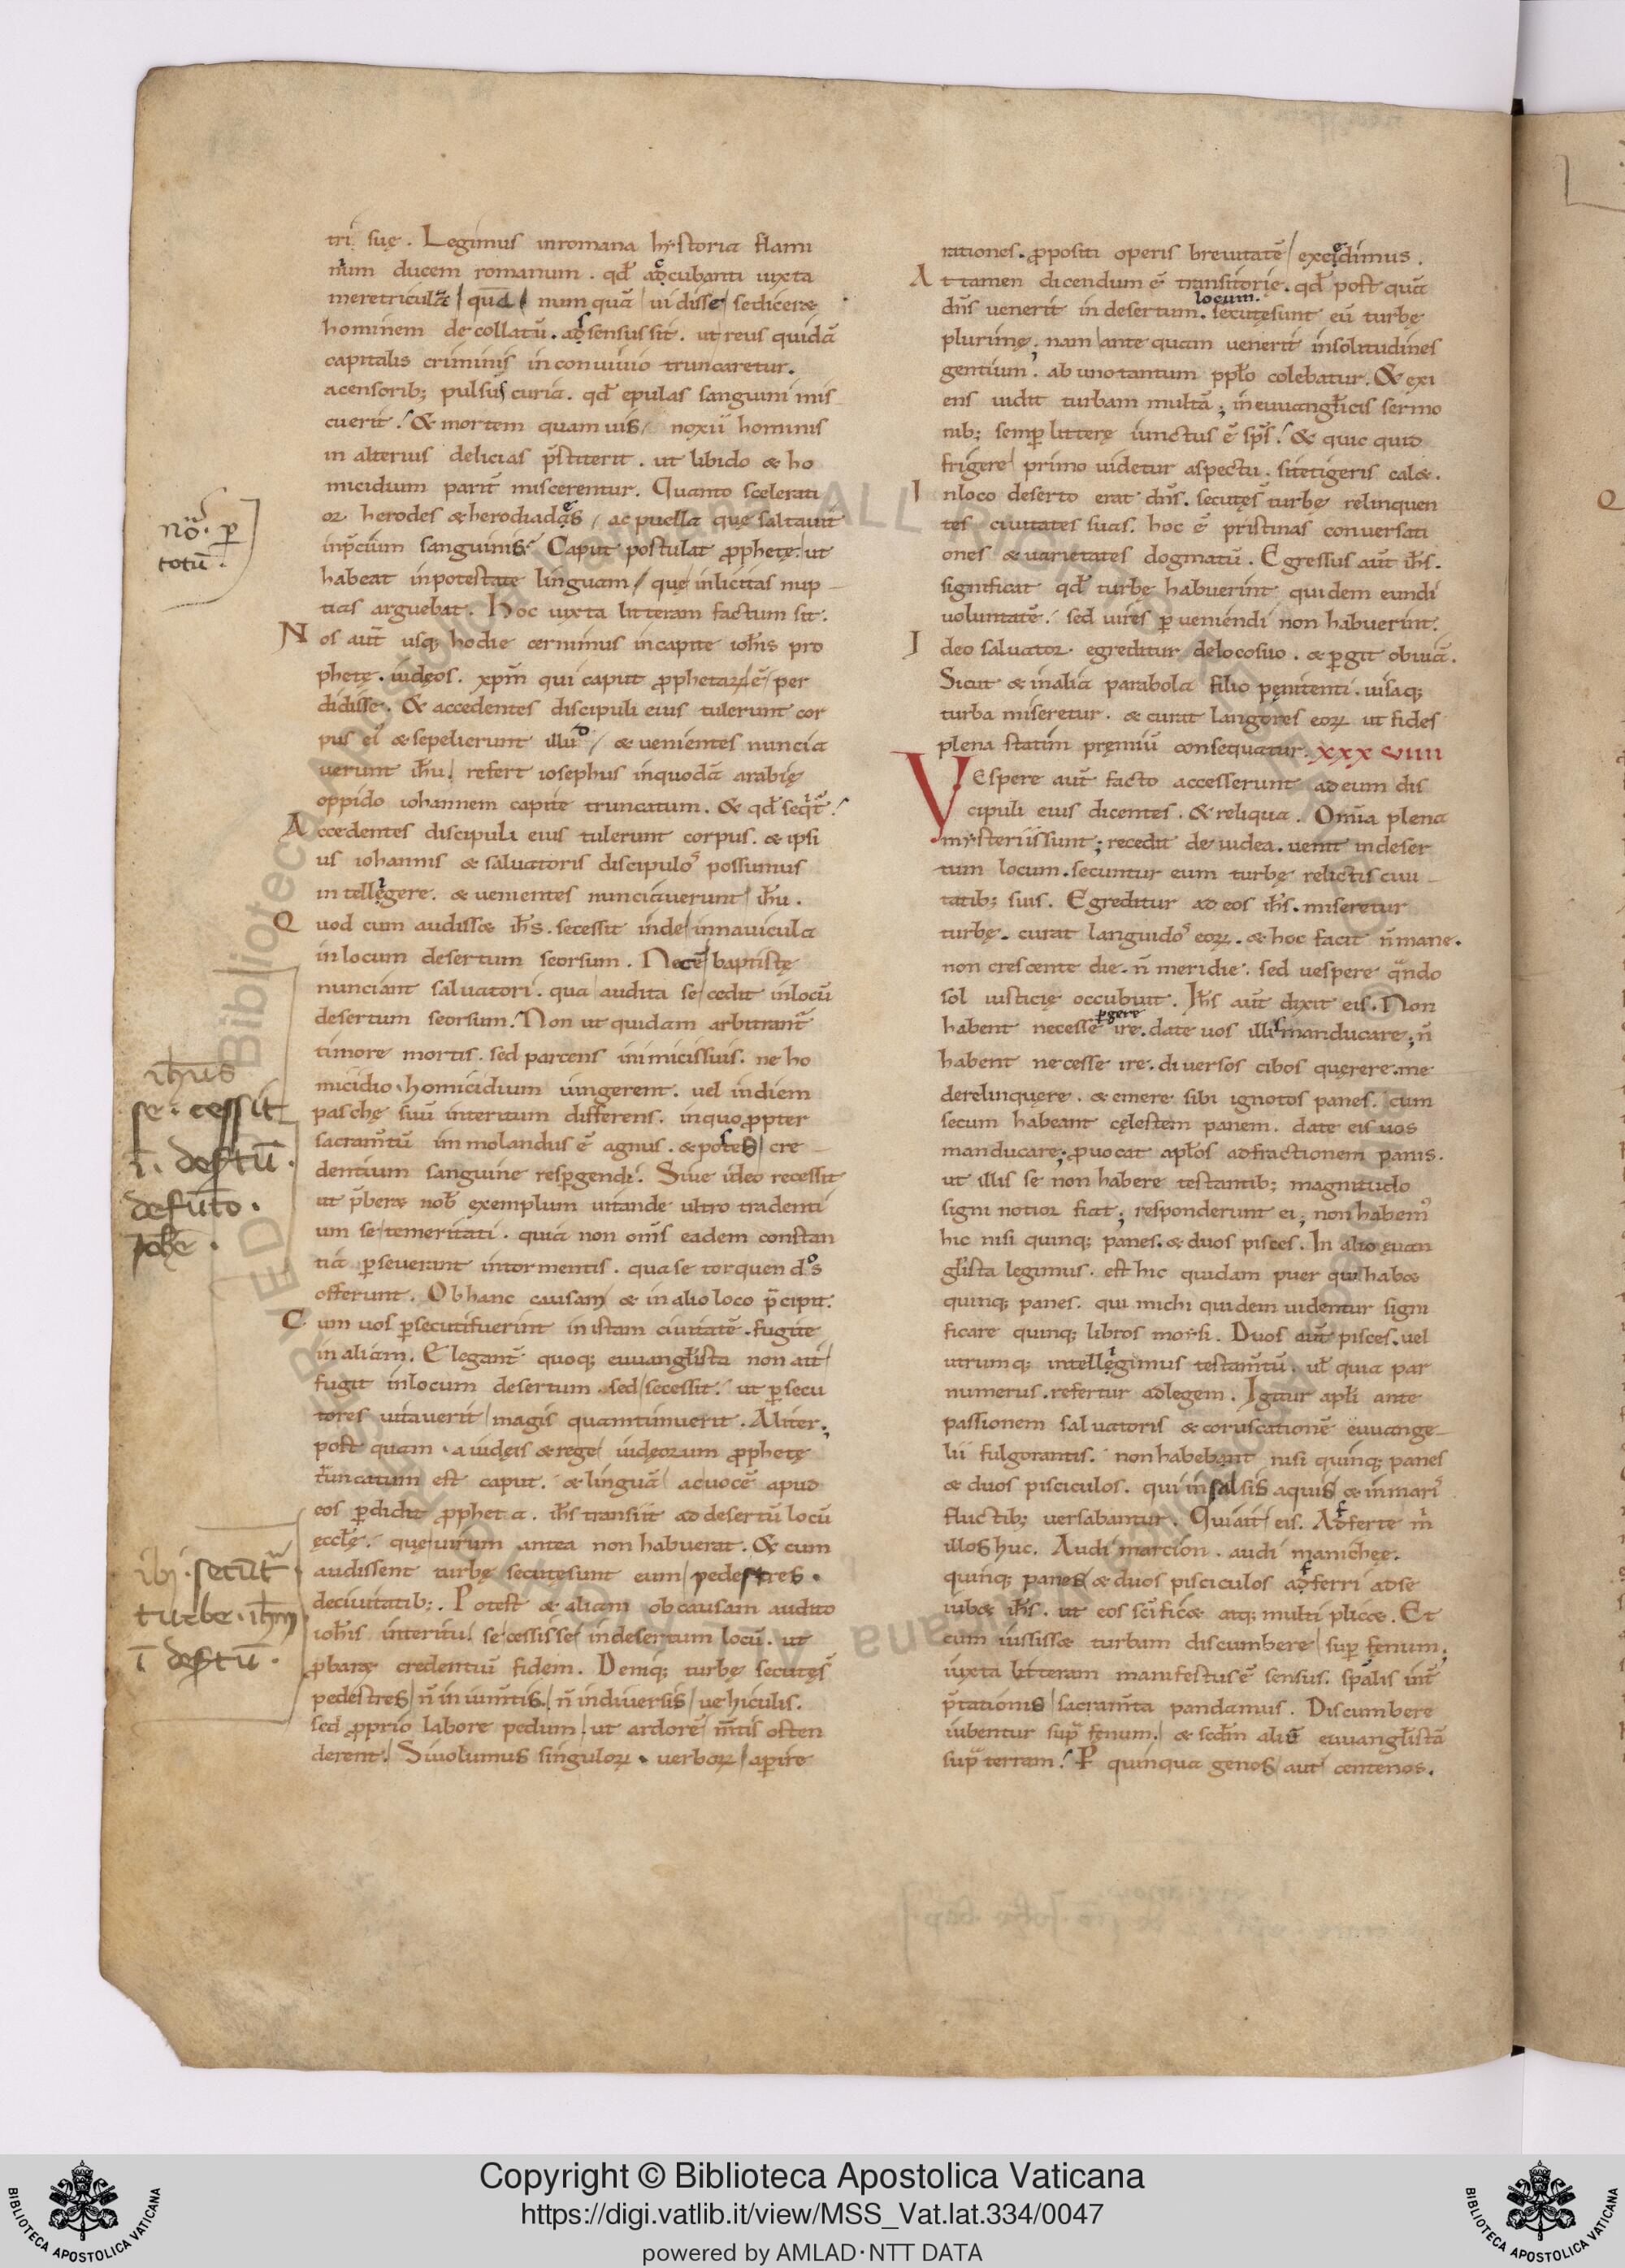 tri suę. Legimus inromana hystoria flami
nium ducem romanum. qđ accubanti iuxta
meretriculā quā numquā uidisse se diceret
hominem decollatū. assensus sit. ut reus quidā
capitalis criminis in conuiuio truncaretur.
a censorib; pulsus curia. qđ epulas sanguini mis
cuerit. & mortem quamuis noxii hominis
in alterius delicias p̄stiterit. ut libido & ho
micidium parit̄ miscerentur. Quanto scelerati
or herodes & herodiades, ac puella que saltauit
inp̄cium sanguinis. Caput postulat p̱rophetę. ut
habeat inpotestate linguam, que inlicitas nup
tias arguebat. Hoc iuxta litteram factum sit.
Nos aut̄ usq; hodie cernimus in capite ioħis pro
phetę. iudęos. xp̄m qui caput prophetarꝝ ē per
didisse. & accedentes discipuli eius tulerunt cor
pus ei' & sepelierunt illud, & uenientes nuncia
uerunt iħu. refert iosephus inquodā arabię
oppido iohannem capite truncatum. & qđ seqt̄.
Accedentes discipuli eius tulerunt corpus. & ipsi
us iohannis & saluatoris discipulos possumus
intelligere. & uenientes nunciauerunt iħu.
Quod cum audisset iħs. secessit inde innauicula
in locum desertum seorsum. Necē baptistę
nunciant saluatori. qua audita secedit inlocū
desertum seorsum. Non ut quidam arbitrant̄
timore mortis. sed parcens inimicissuis. ne ho
micidio homicidium iungerent. uel indiem
paschę suū interitum differens. inquo ꝓpter
sacram̄tū immolandus ē agnus. & postes cre
dentium sanguine resꝑgendi. Siue ideo recessit
ut p̄beret nob̄ exemplum uitande ultro tradenti
um se temeritati. quia non om̄s eadem constan
tia ꝑseuerant intormentis. qua se torquendos
offerunt. Ob hanc causam & in alio loco p̄cipit.
Cum uos ꝑsecuti fuerint in istam ciuitatē. fugite
in aliam. Elegant̄ quoq; euuangłista non ait
fugit inlocum desertum. sed secessit. ut ꝑsecu
tores uitauerit magis quam timuerit. Aliter.
post quam a iudęis & rege iudęorum prophetę
truncatum est caput. & linguā ac uocē apud
eos ꝑdidit propheta. iħs transiit ad desertū locū
ęccłę. que uirum antea non habuerat. & cum
audissent turbę secutęsunt eum pedestres.
deciuitatib;. Potest & aliam ob causam audito
ioħis interitu. secessisse indesertum locū. ut
ꝓbaret credentiū fidem. Deniq; turbę secutęs̄
pedestres n̄ in ium̄tis. n̄ indiuersis uehiculis.
sed ꝓprio labore pedum. ut ardorē m̄tis osten
derent. Siuolumus singulorꝝ uerborꝝ aperire
nō. ꝑ
totū.
iħus
secessit
ī. desertū.
defūto.
ioħe.
ibi. secūt
turbe. iħm
ī desertū.
rationes. ꝓpositi operis breuitatē excedimus.
Attamen dicendum ē transitorię. qđ post quā
dn̄s uenerit in desertum. locum. secutęsunt eū turbę
plurimę; nam ante quam uenerit insolitudines
gentium. ab uno tantum ppło colebatur. & exi
ens uidit turbam multā; in euuangłicis sermo
nib; semꝑ litterę iunctus ē sps̄. & quicquid
frigere primo uidetur aspectu. sitetigeris calet.
Inloco deserto erat dn̄s. secutęs̄ turbę relinquen
tes ciuitates suas. hoc ē pristinas conuersati
ones & uarietates dogmatū. Egressus aut̄ iħs.
significat qđ turbę habuerint quidem eundi
uoluntatē. sed uires ꝑueniendi non habuerint.
Ideo saluator egreditur delocosuo. & ꝑgit obuiā.
Sicut & inalia parabola filio pęnitenti. uisaq;
turba miseretur. & curat langores eorꝝ ut fides
plena statim pręmiū consequatur. XXXVIIII
Vespere aut̄ facto accesserunt ad eum dis
cipuli eius dicentes. & reliqua. Om̄ia plena
mysteriissunt; recedit de iudea. uenit indeser
tum locum. secuntur eum turbę relictis ciui
tatib; suis. Egreditur ad eos iħs. miseretur
turbę. curat languidos eorꝝ. & hoc facit n̄ mane.
non crescente die. n̄ meridie. sed uespere qn̄do
sol iusticię occubuit. Iħs aut̄ dixit eis. Non
habent necesse ꝑgere ire. date uos illis manducare; n̄
habent necesse ire. diuersos cibos quęrere. me
derelinquere. & emere sibi ignotos panes. cum
secum habeant cęlestem panem. date eis uos
manducare; ꝓuocat apłos adfractionem panis.
ut illis se non habere testantib; magnitudo
signi notior fiat; responderunt ei; non habem'
hic nisi quinq; panes. & duos pisces. In alio euan
głista legimus. est hic quidam puer qui habet
quinq; panes. qui michi quidem uidentur signi
ficare quinq; libros moysi. Duos aut̄ pisces. uel
utrumq; intelligimus testam̄tū. uł quia par
numerus. refertur adlegem. Igitur apłi ante
passionem saluatoris & coruscationē euuange
lii fulgorantis. non habebant nisi quinq; panes
& duos pisciculos. qui in salsis aquis & in maris
fluctib; uersabantur. Qui ait eis. Afferte m̄
illos huc. Audi marcion. audi manichęe.
quinq; panes & duos pisciculos afferri adse
iubet iħs. ut eos sc̄ificet atq; multiplicet. Et
cum iussisset turbam discumbere suꝑ fęnum;
iuxta litteram manifestus ē sensus. sp̄alis int̄
p̄tationis sacram̄ta pandamus. Discumbere
iubentur supra fęnum. & scđm aliū euuangłistā
supra terram. P quinquagenos aut centenos.
Copyright © Biblioteca Apostolica Vaticana
https://digi.vatlib.it/view/MSS_Vat.lat.334/0047
powered by AMLAD·NTT DATA
BIBLIOTECA APOSTOLICA VATICANA
BIBLIOTECA APOSTOLICA VATICANA